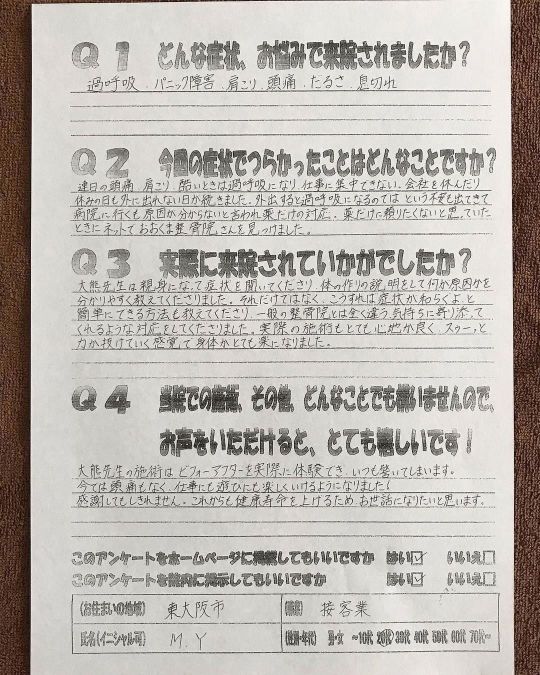 Q1 どんな症状、お悩みで来院されましたか？
過呼吸、パニック障害、肩こり、頭痛、だるさ、息切れ
Q2 今回の症状でつらかったことはどんなことですか？
連日の頭痛、肩こり、酷いときは過呼吸になり、仕事に集中できない、会社を休んだり
休みの日も外に出れない日が続きました。外出すると過呼吸になるのでは という不安も出てきて
病院に行くも原因が分からないと言われ薬だけの対応、薬だけに頼りたくないと思っていた
ときにネットでおおくま整骨院さんを見つけました。
Q3 実際に来院されていかがでしたか？
大熊先生は親身になって症状を聞いてくださり 体の作りの説明をして何が原因かを
分かりやすく教えてくださりました。それだけではなく、こうすれば症状がわらぐよ、と
簡単にできる方法も教えてくださり、一般の整骨院とは全く違う気持ちに寄り添って
くれるような対応をしてくださりました。実際の施術もとても心地が良く、スゥーッと
力が抜けていく感覚で身体がとても楽になりました。
Q4 当院での施術、その他、どんなことでも構いませんので、
お声をいただけると、とても嬉しいです！
大熊先生の施術は ビフォーアフターを実際に体験でき、いつも驚いてしまいます。
今では頭痛もなく、仕事にも遊びにも楽しくいけるようになりました！
感謝してもしきれません。これからも健康寿命を上げるため、お世話になりたいと思います。
このアンケートをホームページに掲載してもいいですか はい☑ いいえ□
このアンケートを院内に掲示してもいいですか はい☑ いいえ□
(お住まいの地域) 東大阪市 (職業) 接客業
氏名(イニシャル可) M.Y (性別・年代) 男・女 ~10代 20代 30代 40代 50代 60代 70代~